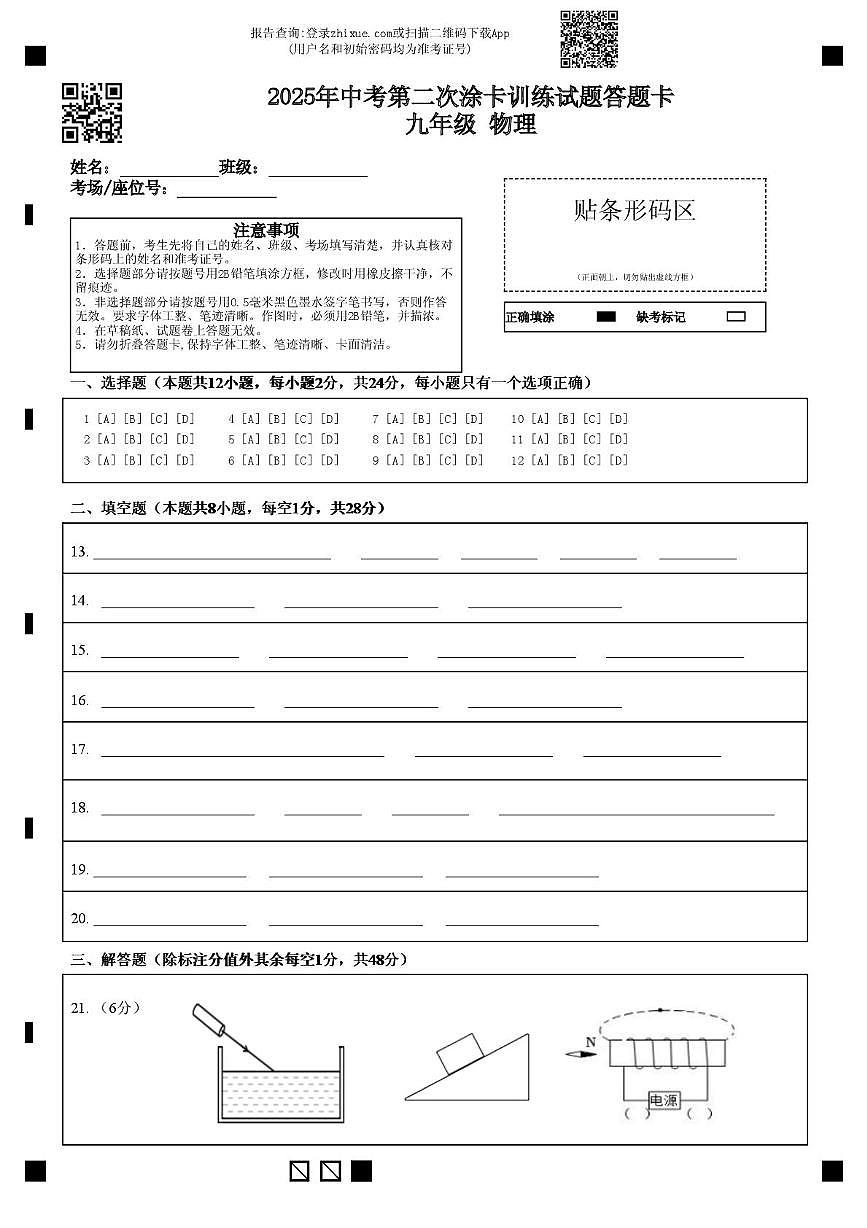 报告查询:登录zhixue.com或扫描二维码下载App
(用户名和初始密码均为准考证号)
2025年中考第二次涂卡训练试题答题卡
九年级 物理
姓名：__________班级：__________
考场/座位号：__________
贴条形码区
(正面朝上，切勿贴出虚线方框)
正确填涂 缺考标记
注意事项
1．答题前，考生先将自己的姓名、班级、考场填写清楚，并认真核对
条形码上的姓名和准考证号。
2．选择题部分请按题号用2B铅笔填涂方框，修改时用橡皮擦干净，不
留痕迹。
3．非选择题部分请按题号用0.5毫米黑色墨水签字笔书写，否则作答
无效。要求字体工整、笔迹清晰。作图时，必须用2B铅笔，并描浓。
4．在草稿纸、试题卷上答题无效。
5．请勿折叠答题卡,保持字体工整、笔迹清晰、卡面清洁。
一、选择题（本题共12小题，每小题2分，共24分，每小题只有一个选项正确）
1 [A] [B] [C] [D] 4 [A] [B] [C] [D] 7 [A] [B] [C] [D] 10 [A] [B] [C] [D]
2 [A] [B] [C] [D] 5 [A] [B] [C] [D] 8 [A] [B] [C] [D] 11 [A] [B] [C] [D]
3 [A] [B] [C] [D] 6 [A] [B] [C] [D] 9 [A] [B] [C] [D] 12 [A] [B] [C] [D]
二、填空题（本题共8小题，每空1分，共28分）
13.
14.
15.
16.
17.
18.
19.
20.
三、解答题（除标注分值外其余每空1分，共48分）
21. （6分）
N
电源
( ) ( )